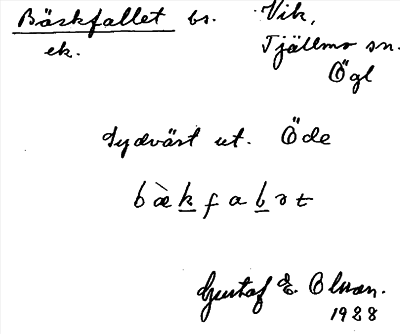 Bäckfallet bs. Vik,
ek. Tjällmo sn.
Ögl
Sydväst ut. Öde
b æ̀ k f a b ə t
Gustaf E. Olsson.
1928